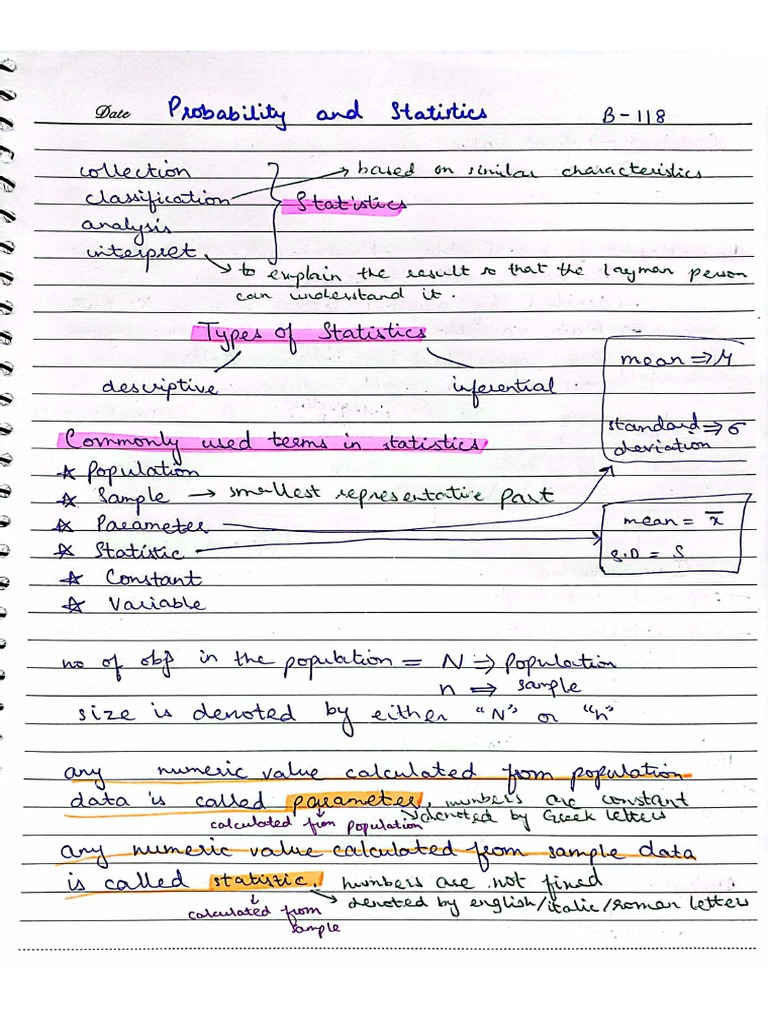 Date Probability and Statistics B-118
collection → based on similar characteristics
classification Statistics
analysis
interpret → to explain the result so that the layman person
can understand it.
Types of Statistics
descriptive inferential
mean ⇒ μ
standard ⇒ σ
deviation
Commonly used terms in statistics
☆ Population
☆ Sample → smallest representative part
☆ Parameter
☆ Statistic
mean = x̅
S.D = S
☆ Constant
☆ Variable
no of obj in the population = N ⇒ population
n ⇒ sample
size is denoted by either "N" or "n"
any numeric value calculated from population
data is called parameter, numbers are constant
calculated from population → denoted by Greek letters
any numeric value calculated from sample data
is called statistic, numbers are not fined
→ denoted by english/italic/roman letters
calculated from
sample